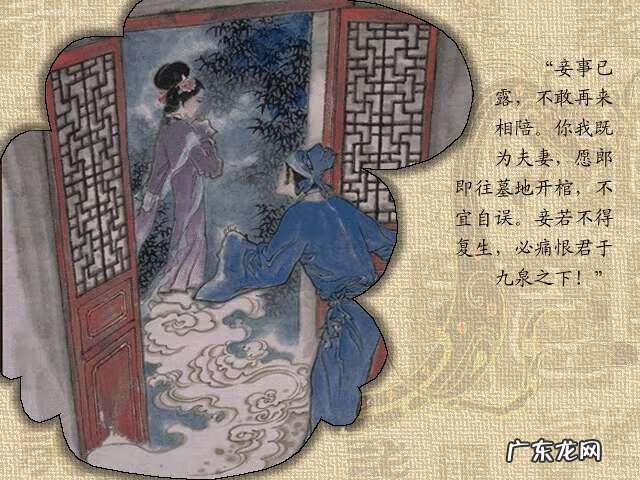 “妾事已
露，不敢再来
相陪。你我既
为夫妻，愿郎
即往墓地开棺，不
宜自误。妾若不得
复生，必痛恨君于
九泉之下！”
广东龙网